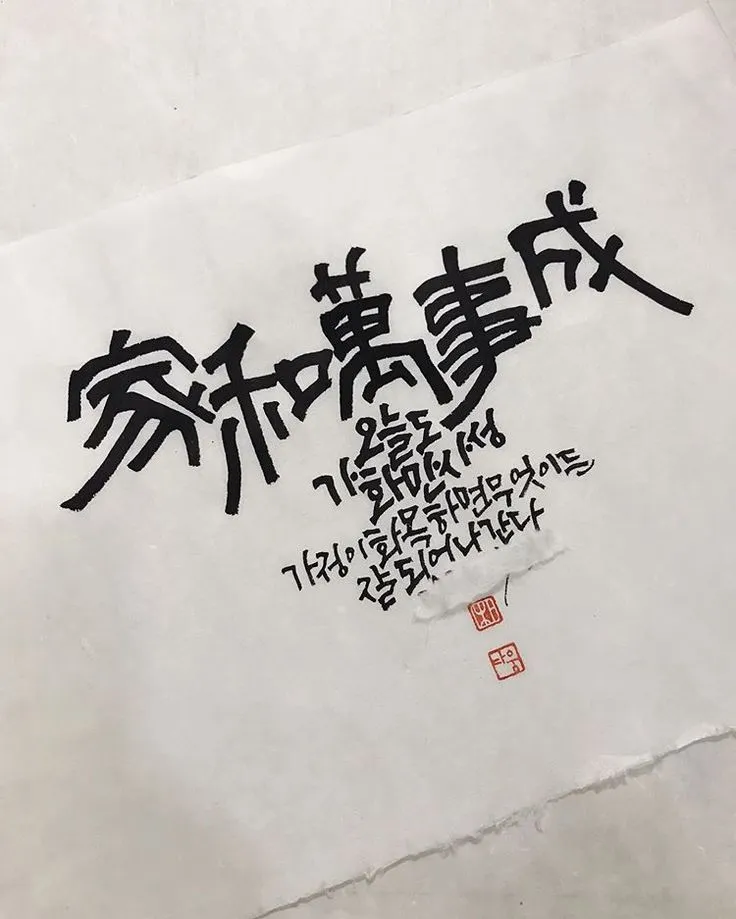 家和萬事成
오늘도
가화만사성
가정이 화목하면 무엇이든
잘 되어 나간다